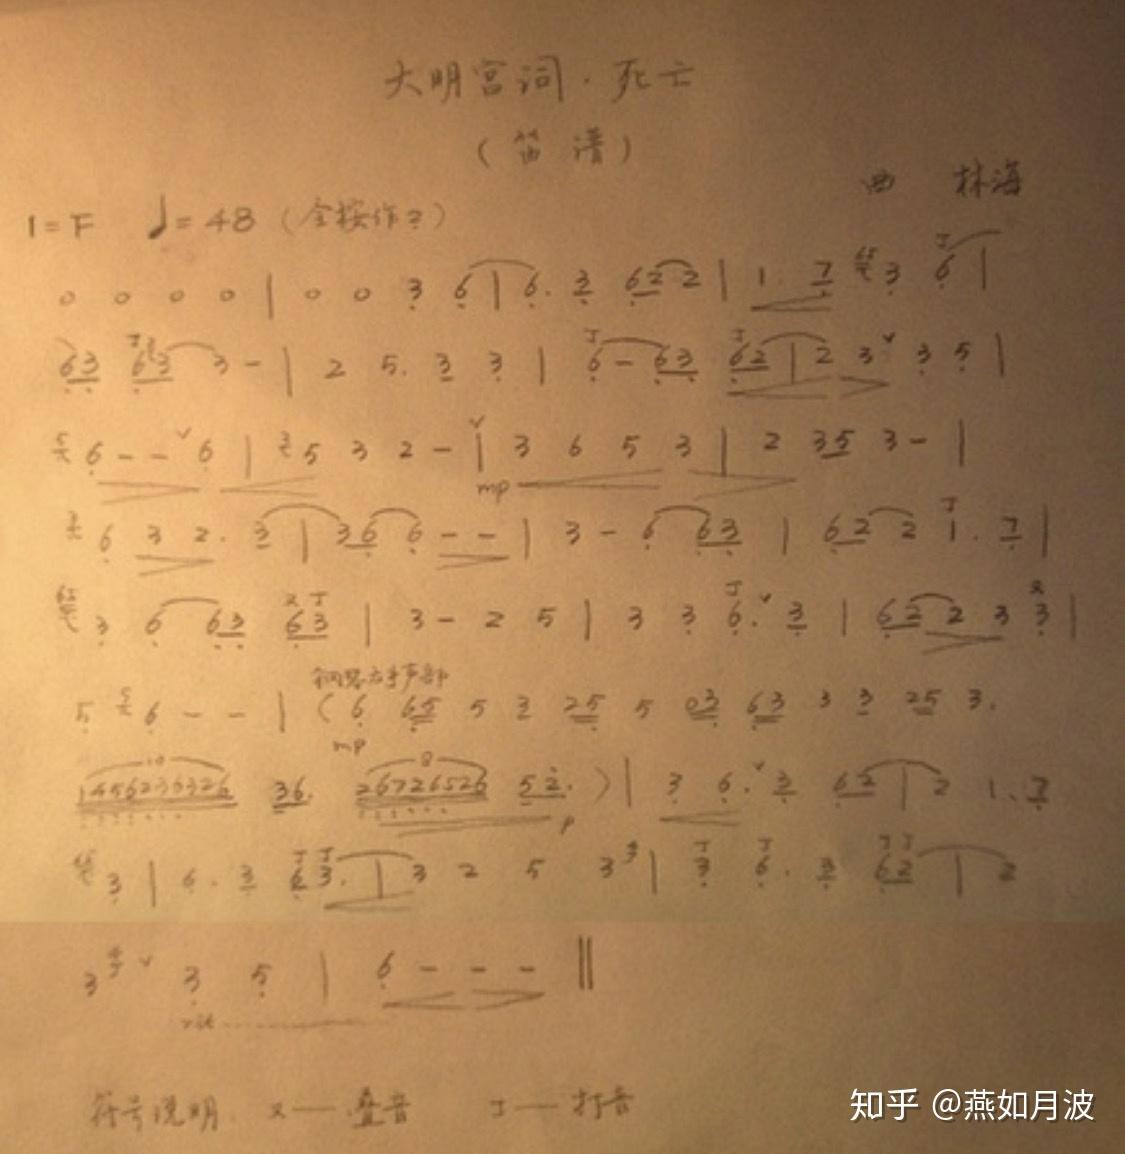 大明宫词·死亡
(笛谱)
曲 林海
1=F ♩=48 (全按作2)
0 0 0 0 | 0 0 3 6 | 6. 3 62 2 | 1. 7 3 6 |
63 63 3 - | 2 5. 3 3 | 6 - 63 62 | 2 3 ˅ 3 5 |
6 - - ˅ 6 | 5 3 2 - ˅ | 3 6 5 3 | 2 35 3 - |
mp
6 3 2. 3 | 36 6 - - | 3 - 6 63 | 62 2 1. 7 |
3 6 63 63 | 3 - 2 5 | 3 3 6. ˅ 3 | 62 2 3 3 |
钢琴右手声部
5 6 - - | ( 6 65 5 3 25 5 03 63 3 3 25 3.
mp
36. 26726526 52. ) | 3 6. ˅ 3 62 | 2 1. 7
p
3 | 6. 3 63. | 3 2 5 3 | 3 6. 3 62 | 2
3 ˅ 3 5 | 6 - - - ‖
rit...........
符号说明: 又—叠音 丁—打音
知乎 @燕如月波